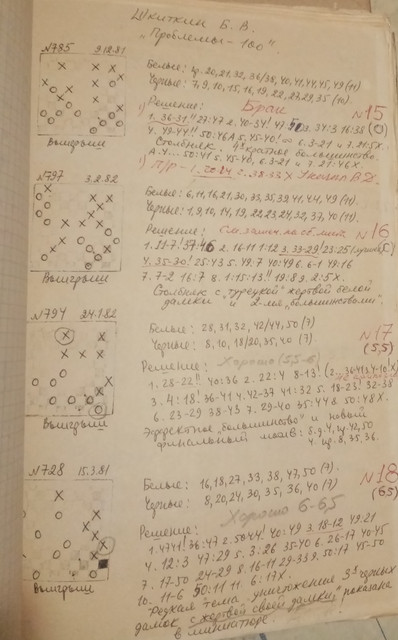 Шкиткин Б. В.
„Проблемы - 100".
№785 9.12.81
Белые: пр. 20, 21, 32, 36/38, 40, 41, 44, 45, 49 (11)
Черные: 7, 9, 10, 15, 16, 19, 22, 27, 29, 35 (10)
Решение: Брак №15
1. 36-31!! 27:47 2. 40-34! 47:50 3. 34:3 16:38 (0)
4. 49-44!! 50:46 А 5. 45-40! ∞ 6. 3-21 и 7. 21:5Х.
Столбняк. 4ᵉ краткое большинство.
А. 4... 50:41 5. 45-40, 6. 3-21 и 7. 21:46Х.
1) П/р - 1. 20-24 2. 38-33 Х Указал В.Д.
Выигрыш
№797 3.2.82
Белые: 6, 11, 16, 21, 30, 33, 35, 39, 41, 44, 49 (11).
Черные: 1, 9, 10, 14, 19, 22, 23, 24, 32, 37, 40 (11).
Решение: №16
7. 7-2 16:7 8. 1:15:13!! 19:8 9. 2:5Х.
Столбняк с „турецкой" жертвой белой
дамки и 2-мя „большинствами".
Выигрыш
№794 24.1.82
Белые: 28, 31, 32, 42/44, 50 (7)
Черные: 8, 10, 18/20, 35, 40 (7).
№17
(5,5)
Решение: Хорошо (5,5-6)
1. 28-22!! 40:36 2. 22:4 8-13!
3. 4:18! 36-41 4. 42-37 41:32 5. 18-23! 32-38
6. 23-29 38-43 7. 29-40 35:44 8. 50:48Х.
Эффектное „большинство" и новый
финальный мотив: б.д. 4, ч. 42, 50
ч. пр. 8, 35, 36.
Выигрыш
№728 15.3.81
Белые: 16, 18, 27, 33, 38, 47, 50 (7).
Черные: 8, 20, 24, 30, 35, 36, 40 (7)
№18
(6,5)
Хорошо 6-6,5
Решение:
1. 47-41! 36:47 2. 50-44! 40:49 3. 18-12 49:21
4. 12:3 47:29 5. 3:26 35-40 6. 26-17 40-45
7. 17-50 24-29 8. 16-11 29-33 9. 50:17 45-50
10. 11-6 50:11 11. 6:17Х.
Редкая тема: уничтожение 3ˣ черных
дамок с жертвой своей дамки, показана
в миниатюре.
Выигрыш